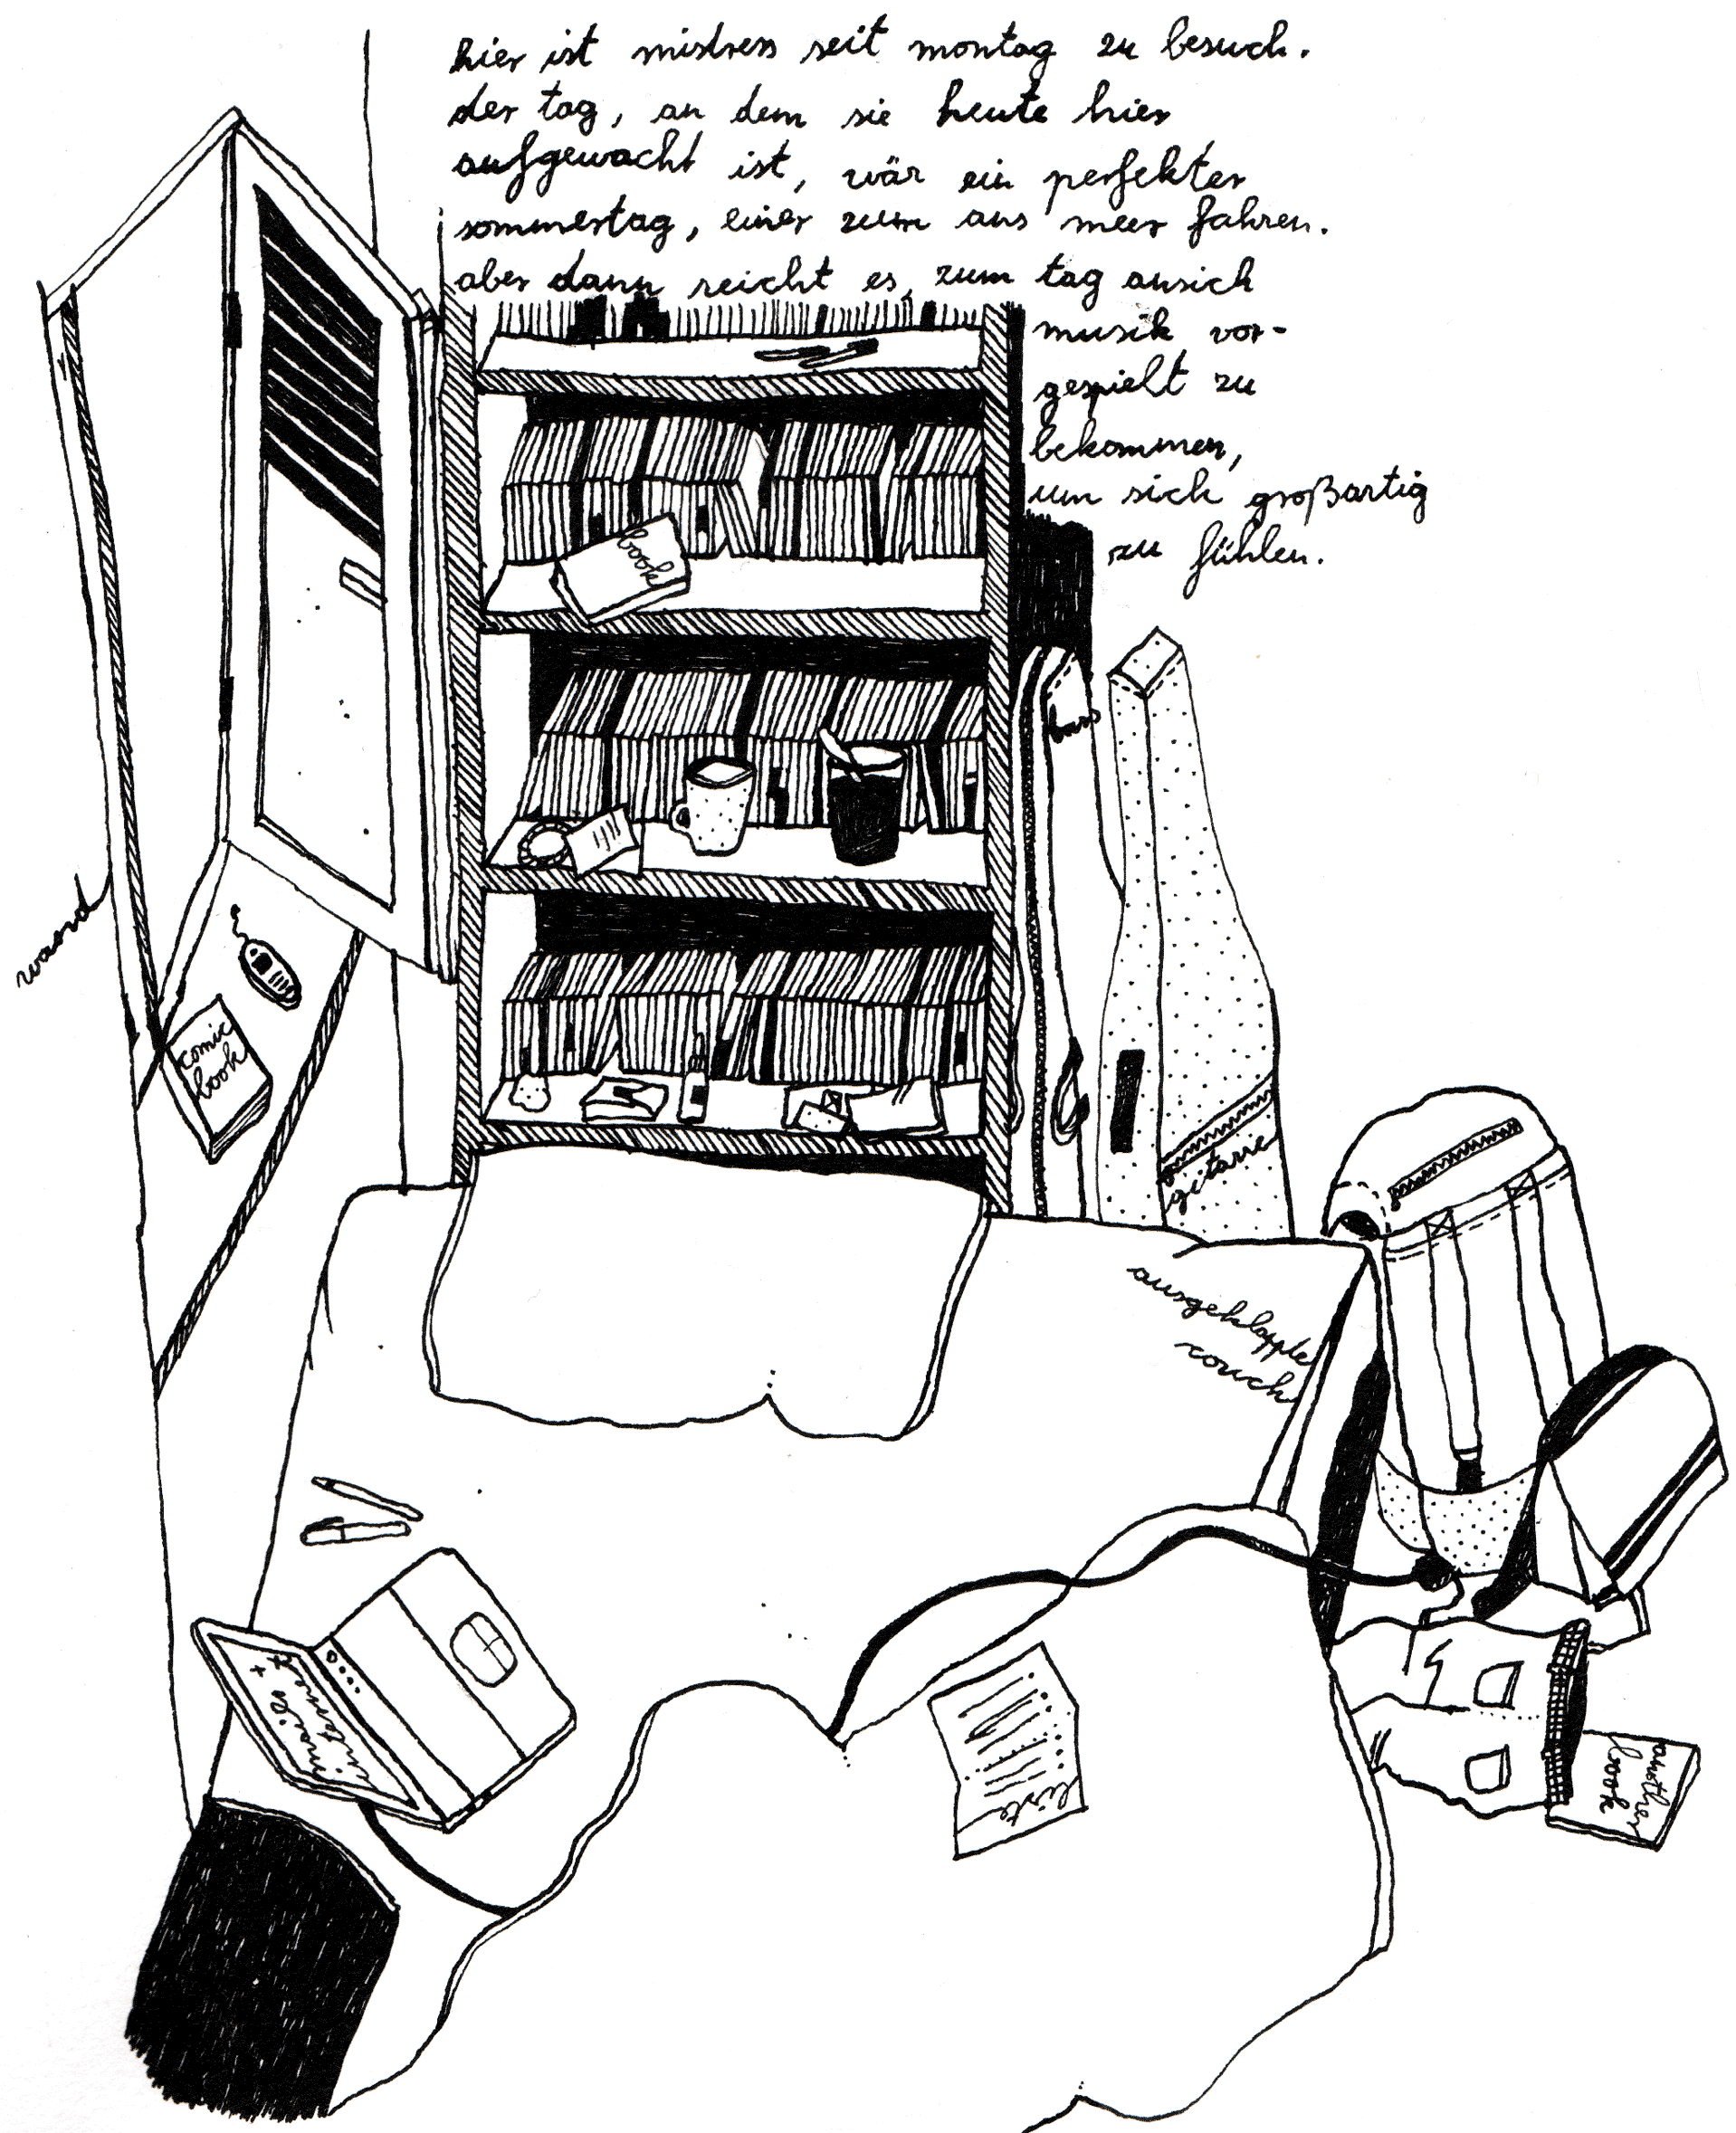 hier ist mistress seit montag zu besuch.
der tag, an dem sie heute hier
aufgewacht ist, wär ein perfekter
sommertag, einer zum ans meer fahren.
aber dann reicht es, zum tag ansich
musik vor-
gespielt zu
bekommen,
um sich großartig
zu fühlen.
book
bass
wand
comic
book
gitarre
ausgeklappte
couch
internet
+ music
liste
another
book